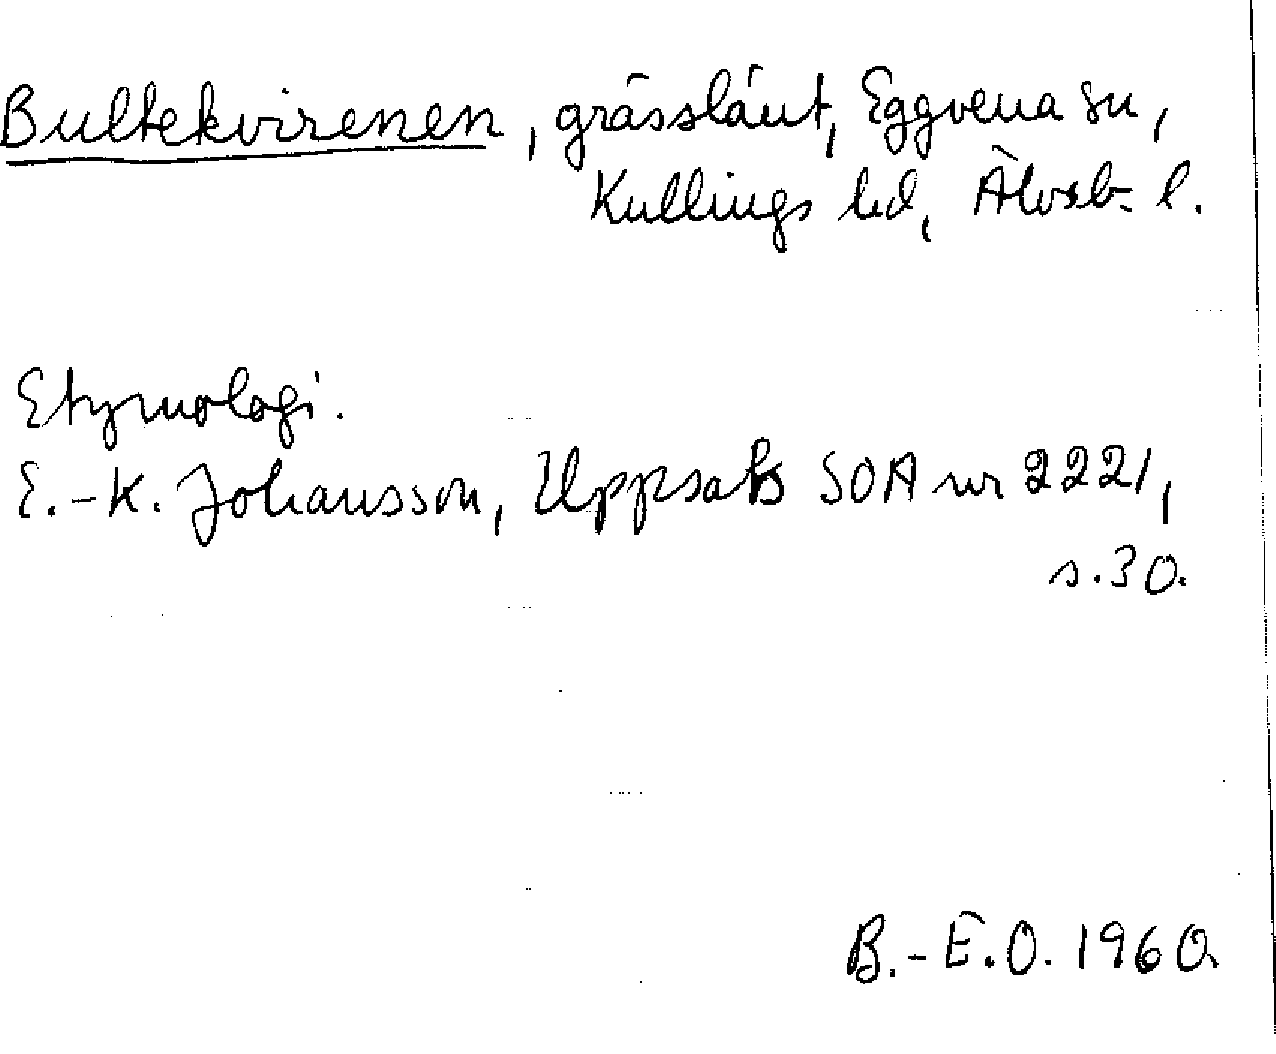 Bultekvirenen, grässlänt, Eggvena sn,
Kullings hd, Älvsb. l.
Etymologi.
E.-K. Johansson, Uppsats SOA nr 2221,
s. 30.
B.-E.O. 1960.